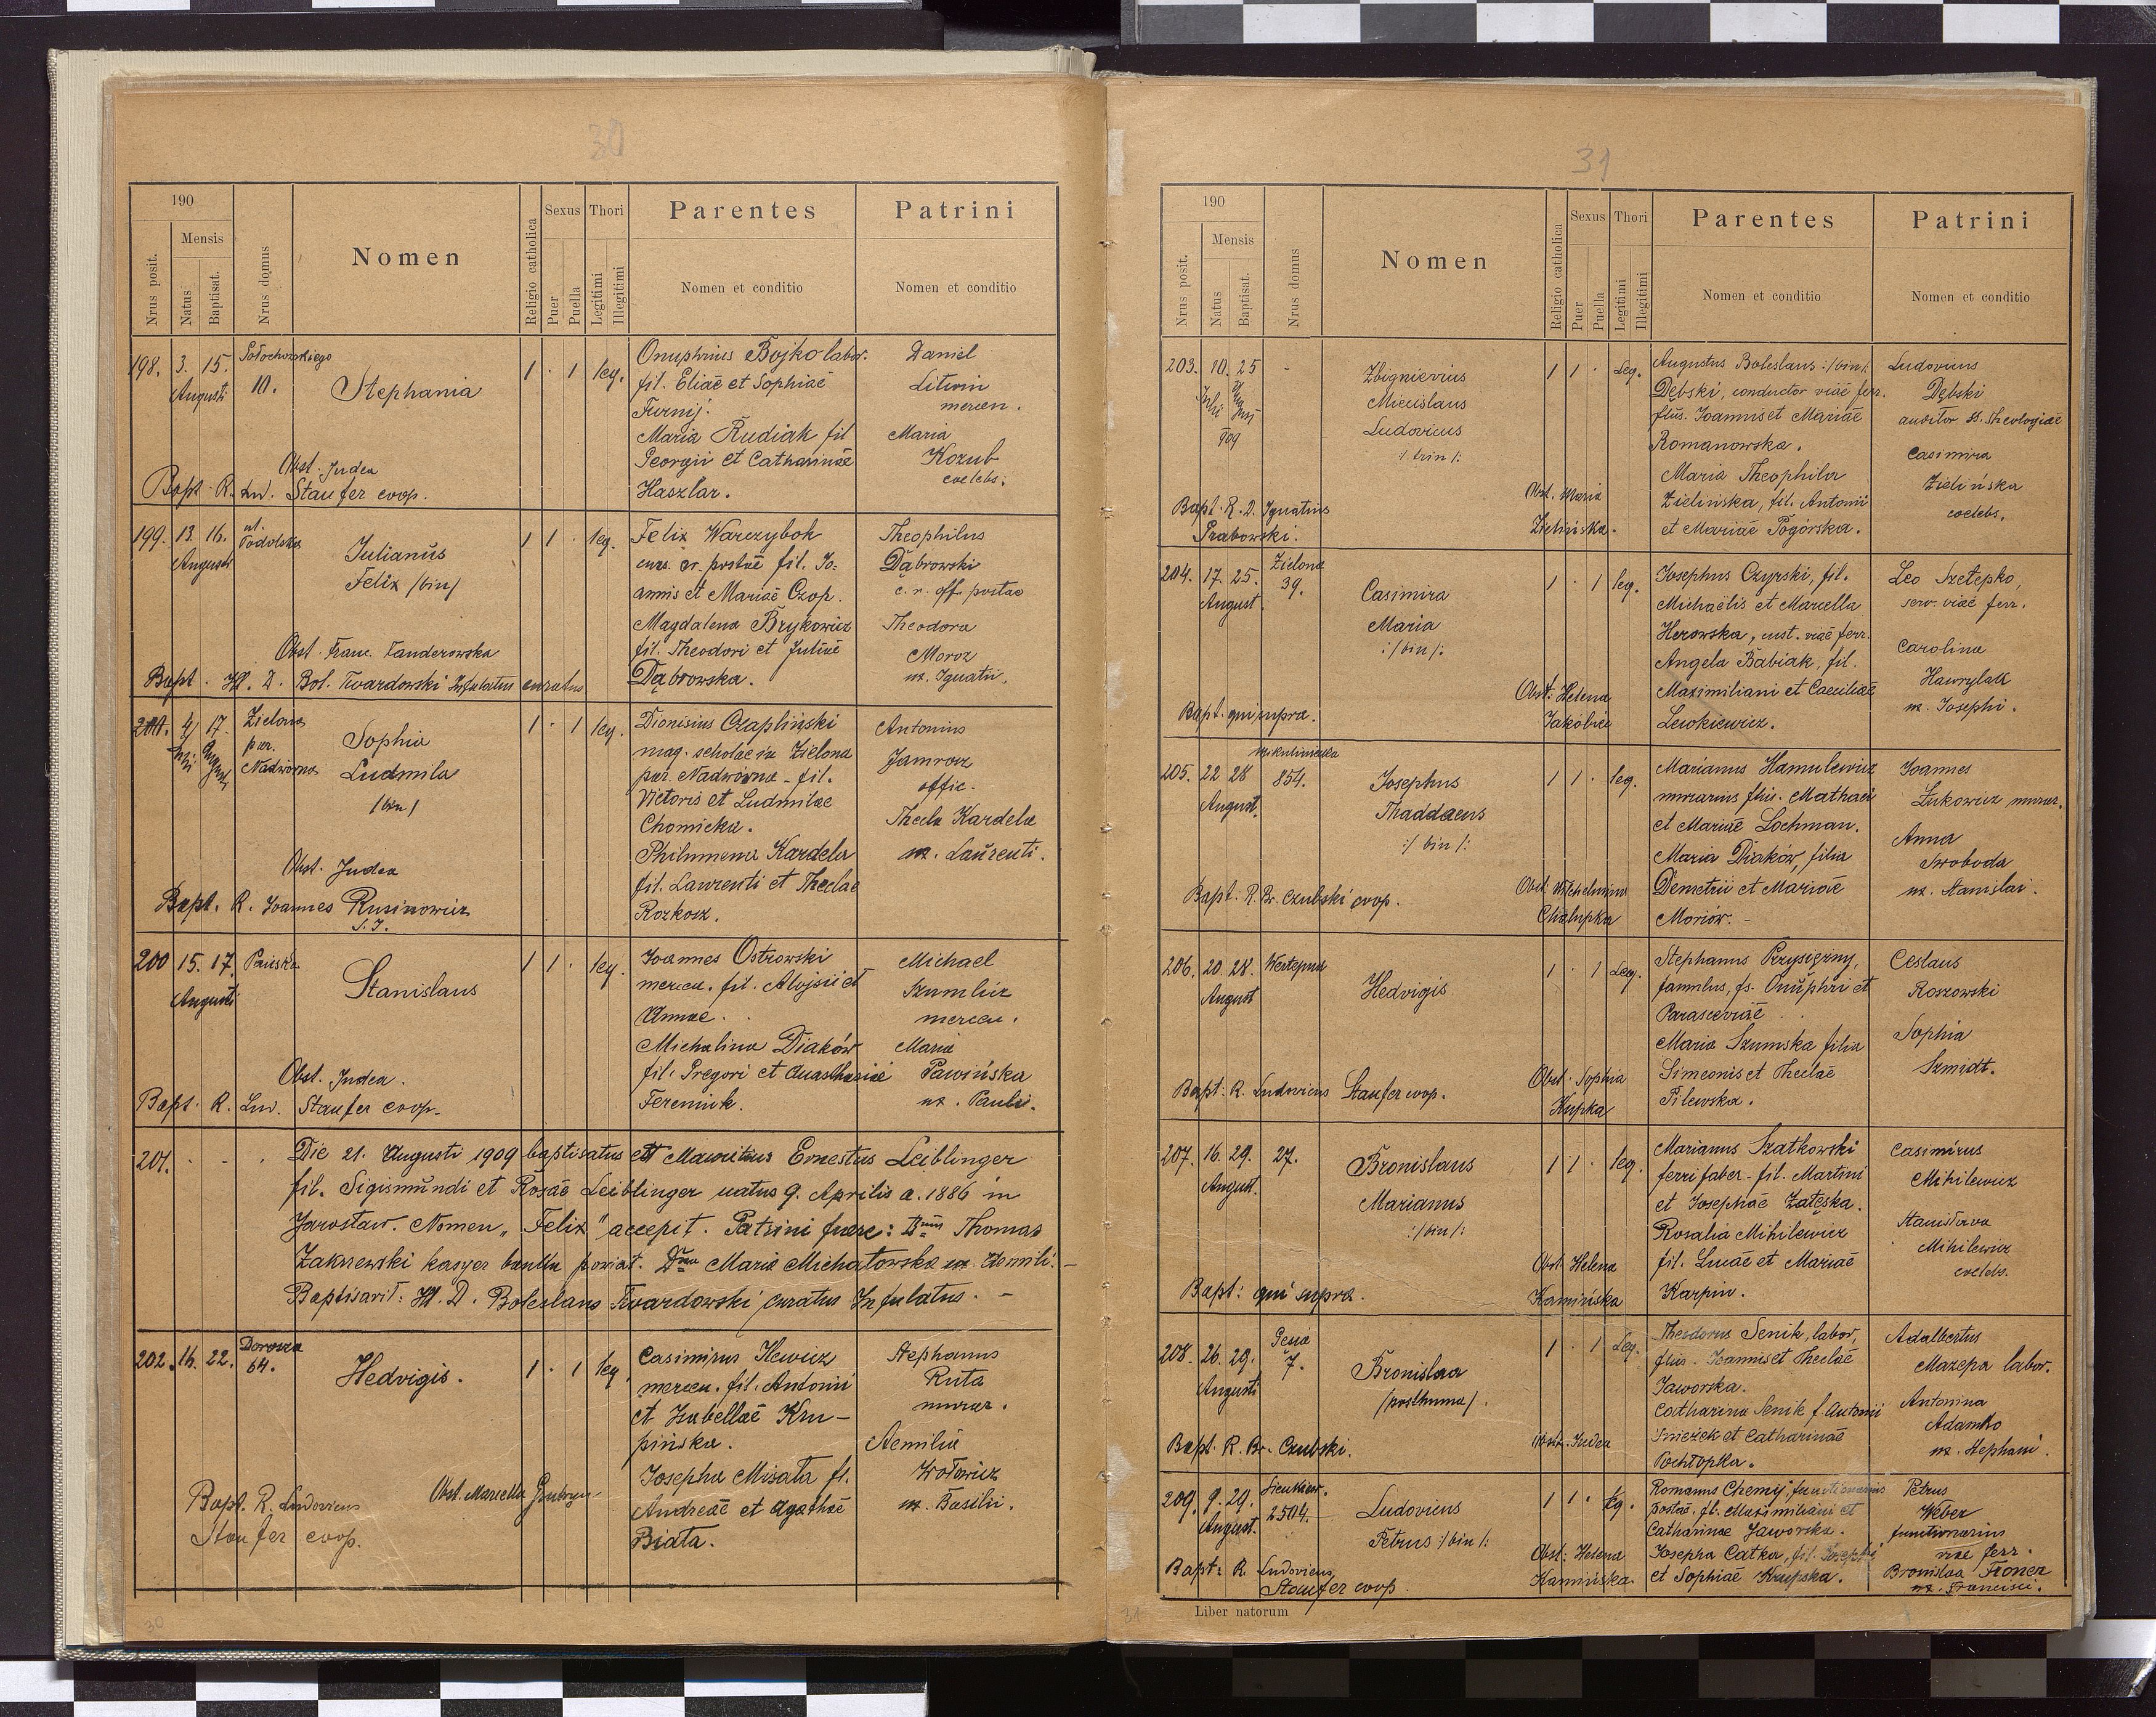 30
190
Nrus posit.
Mensis
Natus
Baptisat.
Nrus domus
Nomen
Religio catholica
Sexus
Puer
Puella
Thori
Legitimi
Illegitimi
Parentes
Nomen et conditio
Patrini
Nomen et conditio
198. 3. 15. Augusti
10.
Stephania
1 · 1 leg.
Onuphrius Bojko labor.
fil. Eliae et Sophiae
Furnij.
Maria Rudiak fil
Georgii et Catharinae
Haszlar.
Daniel
Litwin
mercen.
Maria
Kozub
coelebs.
Obst. Judea
Bapt. R. Lud. Staufer coop.
199. 13. 16. Augusti
ul. Podolska
Julianus
Felix /bin/
1 1 · leg.
Felix Warczybok
curs. cr. postae fil. Jo-
annis et Mariae Czop.
Magdalena Brykowicz
fil. Theodori et Juliae
Dąbrowska.
Theophilus
Dąbrowski
c. r. off. postae
Theodora
Moroz
ux. Ignatii.
Obst. Franc. Tanderowska
Bapt. Ill. D. Bol. Twardowski Infulatus curatus
4/ 17.
Julii Augusti
Zielona
par.
Nadwórna
Sophia
Ludmila
/bin/
1 · 1 leg.
Dionisius Czapliński
mag. scholae in Zielona
par. Nadwórna - fil.
Victoris et Ludmilae
Chomicka.
Philumena Kardela
fil. Laurenti et Theclae
Rozkosz.
Antonius
Jamrosz
offic.
Thecla Kardela
ux. Laurenti.
Obst. Judea
Bapt. R. Joannes Rusinowicz
S. J.
200 15. 17. Augusti
Pańska
Stanislaus
1 1 · leg.
Joannes Ostrowski
mercen. fil. Alojsii et
Annae.
Michalina Diaków
fil. Gregori et Anasthasiae
Fereniuk.
Michael
Szumluz
mercen.
Maria
Pawińska
ux. Pauli.
Obst. Judea.
Bapt. R. Lud. Staufer coop.
201. - - .
Die 21. Augusti 1909 baptisatus est Mauritius Ernestus Leiblinger
fil. Sigismundi et Rosae Leiblinger natus 9. Aprilis a. 1886 in
Jarosław. Nomen "Felix" accepit. Patrini fuere: Dnus Thomas
Zakrzewski kasyer banku powiat. Dna Maria Michałowska ux. Aemili. -
Baptisavit: Ill. D. Boleslaus Twardowski curatus Infulatus. -
202. 16. 22.
64.
Hedvigis.
1 · 1 leg.
Casimirus Ilewicz
mercen. fil. Antonii
et Isabellae Kru-
pińska.
Josepha Misata fl.
Andreae et Agathae
Biata.
Stephanus
Ruta
murar.
Aemilia
Wołowicz
ux. Basilii.
Bapt. R. Ludovicus
Staufer coop.
Obst. Marcella
30
31
190
Nrus posit.
Mensis
Natus
Baptisat.
Nrus domus
Nomen
Religio catholica
Sexus
Puer
Puella
Thori
Legitimi
Illegitimi
Parentes
Nomen et conditio
Patrini
Nomen et conditio
203. 10. 25 -
Julii
909
Zbignievius
Miecislaus
Ludovicus
:/ trin /:
1 1 · Leg.
Augustus Boleslaus :/bin/:
Dębski, conductor viae ferr.
flius. Joannis et Mariae
Romanowska.
Maria Theophila
Zielińska, fil. Antonii
et Mariae Pogórska.
Ludovicus
Dębski
auditor ss. theologiae
Casimira
Zielińska
coelebs.
Bapt. R. D. Ignatius
Grabowski.
Obst. Maria
Zielińska.
204. 17. 25. August.
Zielona
39.
Casimira
Maria
:/bin/:
1 · 1 leg.
Josephus Czyrski, fil.
Michaelis et Marcella
Herowska, cust. viae ferr.
Angela Babiak, fil.
Maximiliani et Caeciliae
Lewkiewicz.
Leo Szetepko,
serv. viae ferr.
Carolina
Hawrylak
ux. Josephi.
Bapt. qui supra.
Obst: Helena
Jakóbiec
205. 22 28 August.
Mikuliniecka
854.
Josephus
Thaddaeus
:/ bin /:
1 1 · leg.
Marianus Hamulewicz
murarius flius. Mathaei
et Mariae Lochman.
Maria Diaków, filia
Demetrii et Mariae
Moriów. -
Joannes
Łukowicz murar.
Anna
Swoboda
ux. Stanislai.
Bapt: R. Br. Czubski coop.
Obst: Wilhelmina
Chalupka
206. 20. 28. August
Hedvigis
1 · 1 Leg.
Stephanus Przysiężny,
famulus, fs. Onuphri et
Parasceviae
Maria Szumska filia
Simeonis et Theclae
Pilewska.
Ceslaus
Roszowski
Sophia
Szmidt.
Bapt: R. Ludovicus Staufer coop.
Obst: Sophia
Kupka
207. 16. 29. August.
27.
Bronislaus
Marianus
:/bin/:
1 1 · leg.
Marianus Szatkowski
ferri faber - fil. Martini
et Josephae Zatęska.
Rosalia Mihilewicz
fil. Lucae et Mariae
Karpin.
Casimirus
Mihilewicz
Stanisława
Mihilewicz
coelebs.
Bapt: qui supra.
Obst Helena
Kamińska
208. 26. 29. Augusti
7.
Bronislaa
/posthuma/.
1 · 1 Leg.
Theodorus Senik, labor,
flius. Joannis et Theclae
Jaworska.
Catharina Senik f. Antonii
Snieżek et Catharinae
Pochłopka.
Adalbertus
Mazepa labor.
Antonina
Adamko
ux. Stephani.
Bapt. R. Br. Czubski.
Obst. Judea
209. 9. 29. August.
Sienkiew.
2504.
Ludovicus
Petrus :/bin/:
1 1 · leg.
Romanus Chemij, functionarius
postae. fl. Maximiliani et
Catharinae Jaworska.
Josepha Catka, fil. Josephi
et Sophiae Krupska.
Petrus
Weber
functionarius
viae ferr.
Bronislaa Froner
ux. Francisci.
Bapt: R. Ludovicus
Staufer coop.
Obst: Helena
Kamińska.
Liber natorum
31